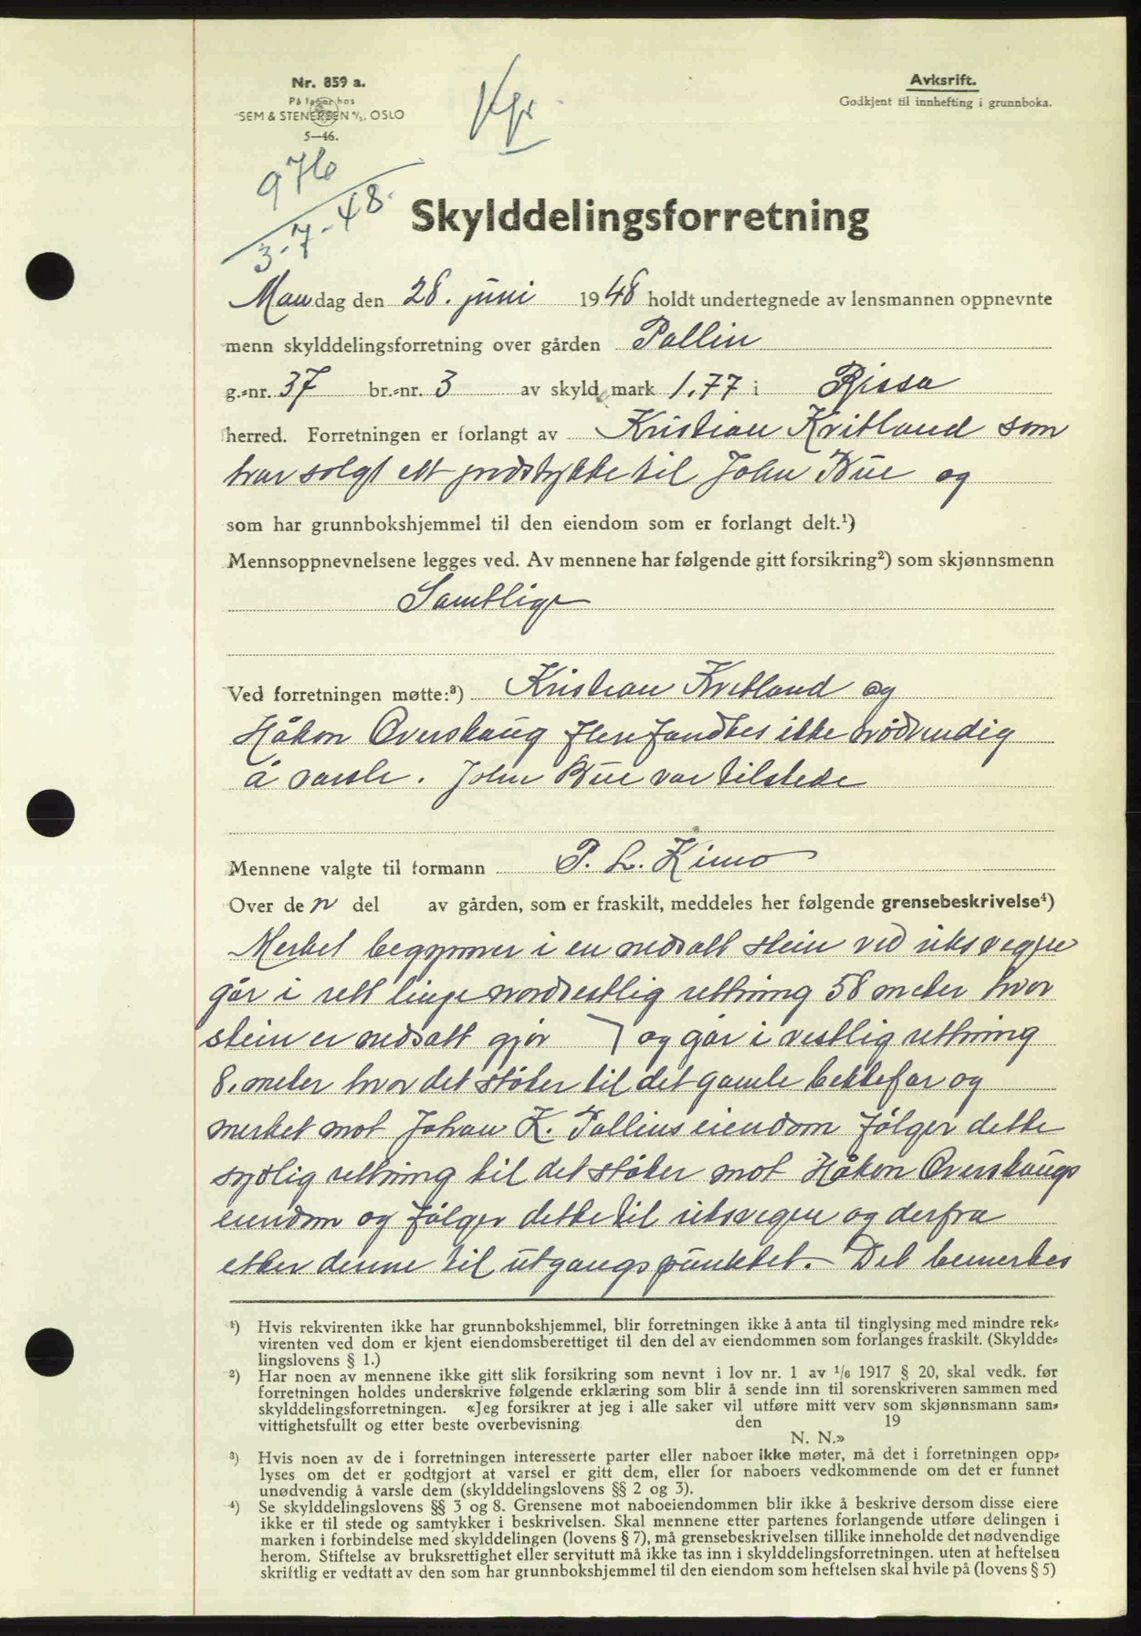 Nr. 859 a.
På lager hos
SEM & STENERSEN A/S, OSLO
5—46.
Avksrift.
Godkjent til innhefting i grunnboka.
976
3-7-48.
Skylddelingsforretning
Mandag den 28. juni 1948 holdt undertegnede av lensmannen oppnevnte
menn skylddelingsforretning over gården Pallin
g.-nr. 37 br.-nr. 3 av skyld mark 1.77 i Rissa
herred. Forretningen er forlangt av Kristian Kvitland som
har solgt ett jordstykke til John Bue og
som har grunnbokshjemmel til den eiendom som er forlangt delt.¹)
Mennsoppnevnelsene legges ved. Av mennene har følgende gitt forsikring²) som skjønnsmenn
Samtlige
Ved forretningen møtte:³) Kristian Kvitland og
Håkon Overskaug flere fandtes ikke nødvendig
å varsle. John Bue var tilstede
Mennene valgte til formann P. L. Kimo
Over den del av gården, som er fraskilt, meddeles her følgende grensebeskrivelse⁴)
Merket begynner i en nedsatt stein ved riksvegen
går i rett linje nordvestlig rettning 58 meter hvor
stein er nedsatt gjør og går i vestlig rettning
8. meter hvor det støter til det gamle bekkefar og
merket mot Johan K. Pallins eiendom følger dette
sydlig rettning til det støter mot Håkon Overskaugs
eiendom og følger dette til riksvegen og derfra
etter denne til utgangspunktet. Det bemerkes
¹) Hvis rekvirenten ikke har grunnbokshjemmel, blir forretningen ikke å anta til tinglysing med mindre rek-
virenten ved dom er kjent eiendomsberettiget til den del av eiendommen som forlanges fraskilt. (Skyldde-
lingslovens § 1.)
²) Har noen av mennene ikke gitt slik forsikring som nevnt i lov nr. 1 av 1/6 1917 § 20, skal vedk. før
forretningen holdes underskrive følgende erklæring som blir å sende inn til sorenskriveren sammen med
skylddelingsforretningen. «Jeg forsikrer at jeg i alle saker vil utføre mitt verv som skjønnsmann sam-
vittighetsfullt og etter beste overbevisning den 19
N. N.»
³) Hvis noen av de i forretningen interesserte parter eller naboer ikke møter, må det i forretningen opp-
lyses om det er godtgjort at varsel er gitt dem, eller for naboers vedkommende om det er funnet
unødvendig å varsle dem (skylddelingslovens §§ 2 og 3).
⁴) Se skylddelingslovens §§ 3 og 8. Grensene mot naboeiendommen blir ikke å beskrive dersom disse eiere
ikke er til stede og samtykker i beskrivelsen. Skal mennene etter partenes forlangende utføre delingen i
marken i forbindelse med skylddelingen (lovens § 7), må grensebeskrivelsen tillike inneholde det nødvendige
herom. Stiftelse av bruksrettighet eller servitutt må ikke tas inn i skylddelingsforretningen. uten at heftelsen
skriftlig er vedtatt av den som har grunnbokshjemmel til den eiendom som heftelsen skal hvile på (lovens § 5)